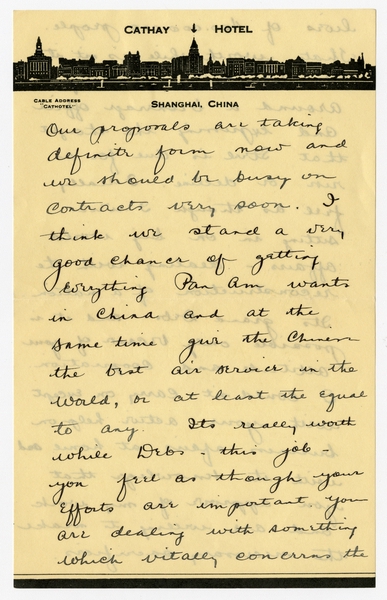 CATHAY HOTEL
CABLE ADDRESS
CATHOTEL
SHANGHAI, CHINA
Our proposals are taking
definite form now and
we should be busy on
contracts very soon. I
think we stand a very
good chance of getting
everything Pan Am wants
in China and at the
same time give the Chinese
the best air service in the
world, or at least the equal
to any. Its really worth
while Debs - this job -
you feel as though your
efforts are important you
are dealing with something
which vitally concerns the